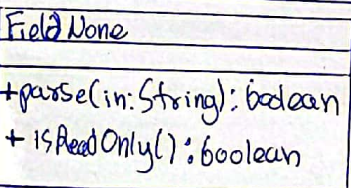 FieldNone
+parse(in:String): boolean
+ isReadOnly(): boolean